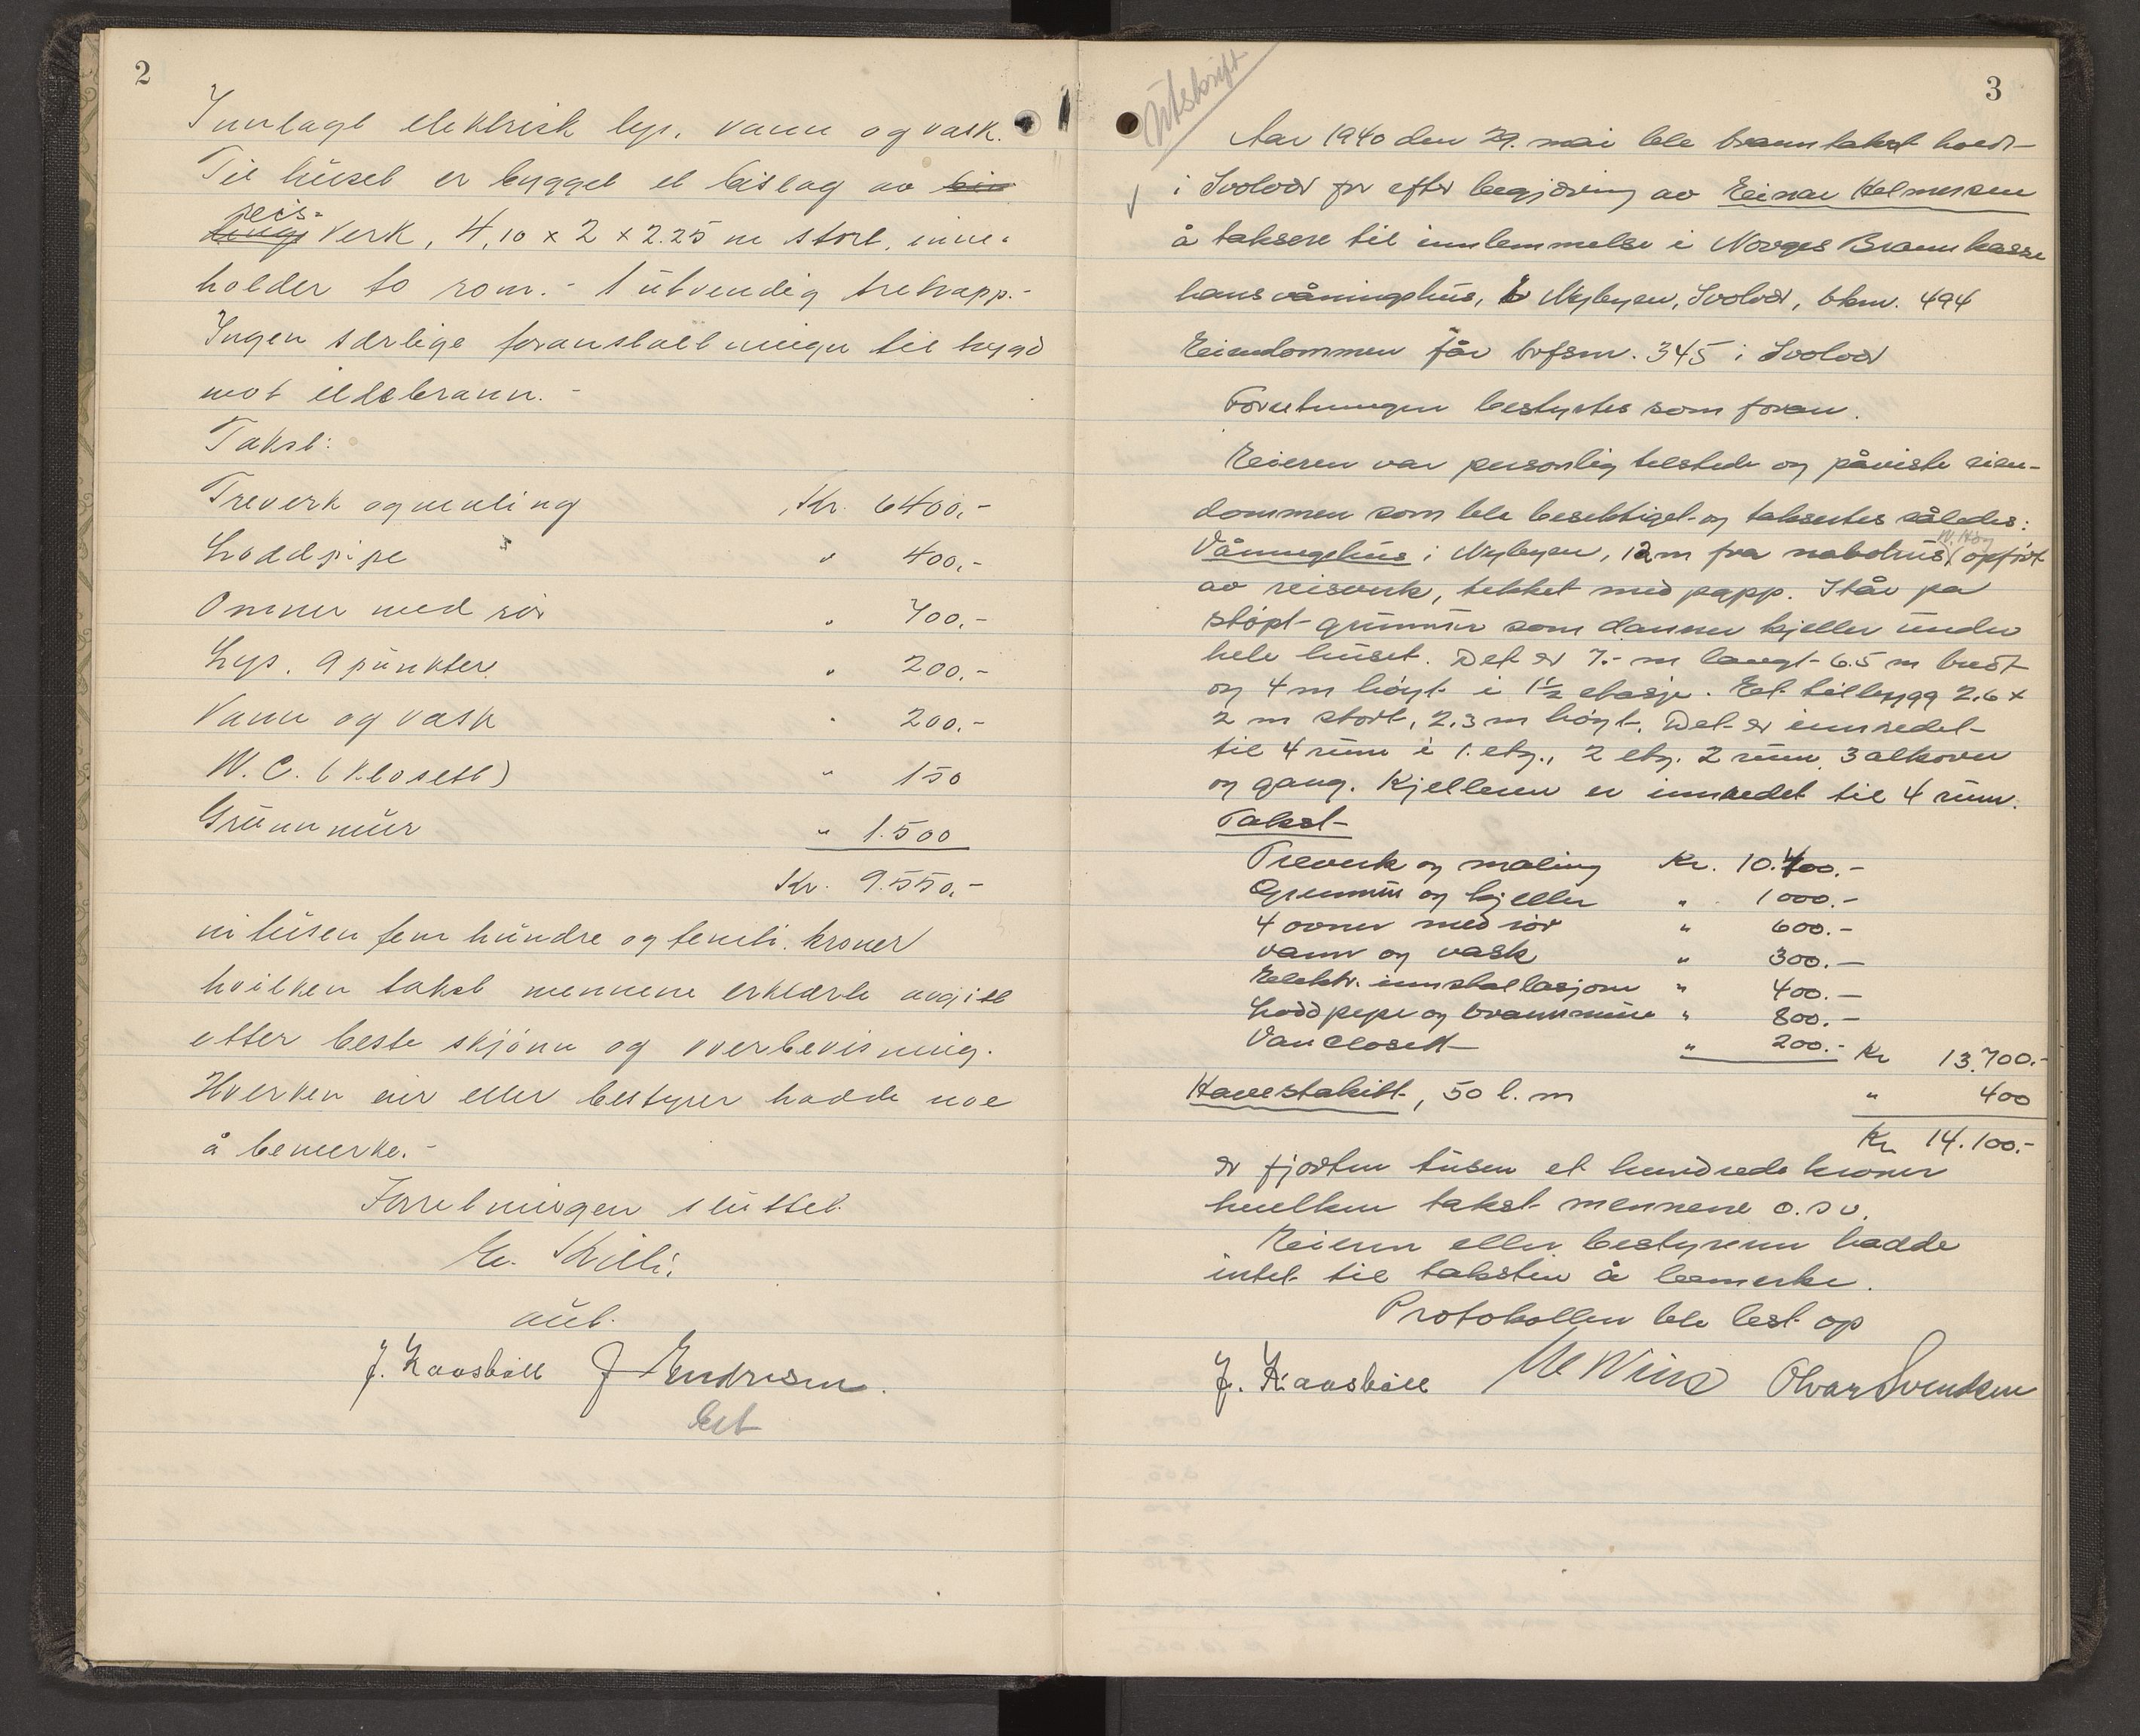 2
Innlagt elektrisk lys, vann og vask.
Til huset er bygget et bislag av bin
reis-
dings verk, 4,10 x 2 x 2.25 m stort, inne-
holder to rom.- 1 utvendig tretrapp.-
Ingen særlige foranstaltninger til trygd
mot ildsbrann.-
Takst:
Treverk og maling Kr. 6400,-
Loddpipe " 400,-
Omner med rör " 700,-
Lys. 9 punkter " 200,-
Vann og vask " 200,-
W.C. (Klosett) " 150
Grunnmur " 1.500
Kr. 9.550,-
ni tusen fem hundre og femti kroner
hvilken takst mennene erklærte avgitt
etter beste skjönn og overbevisning.
Hverken eier eller bestyrer hadde noe
å bemerke.-
Forretningen sluttet.
aut.
J. Kaasböll J Endresen.
lest
3
Utskrift
Aar 1940 den 29. mai ble branntakst holdt
i Svolvær for efter begjæring av Einar Helmersen
å taksere til innlemmelse i Norges Brannkasse
hans våningshus, Nybyen, Svolvær, bknr. 494
Eiendommen får brfsnr. 345 i Svolvær
Forretningen bestyrtes som foran.
Eieren var personlig tilstede og påviste eien-
dommen som ble besiktiget og taksertes således:
Våningshus i Nybyen, 12 m fra nabohus, opført
av reisverk, tekket med papp. Står på
støpt grunnmur som danner kjeller under
hele huset. Det er 7.- m langt 6.5 m bredt
og 4 m høyt i 1½ etasje. Et tilbygg 2.6 x
2 m stort, 2.3 m høyt. Det er innredet
til 4 rum i 1. etg., 2 etg. 2 rum, 3 alkover
og gang. Kjelleren er innredet til 4 rum.
Takst
Treverk og maling Kr. 10.400.-
Grunnmur og kjeller " 1000.-
4 ovner med rør " 600.-
Vann og vask " 300.-
Elektr. innstallasjon " 400.-
Loddpipe og brannmur " 800.-
Vanclosett " 200.- Kr 13.700.-
Havestakitt, 50 l. m " 400
Kr 14.100.-
er fjorten tusen et hundrede kroner
hvilken takst mennene o.s.v.
Eieren eller bestyreren hadde
intet til taksten å bemerke.
Protokollen ble lest op
J. Kaasböll Olvar Svendsen